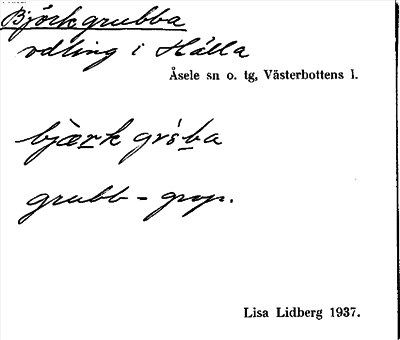 Björkgrubba
odling i Hälla
Åsele sn o. tg, Västerbottens l.
bjærk groba
grubb - grop.
Lisa Lidberg 1937.